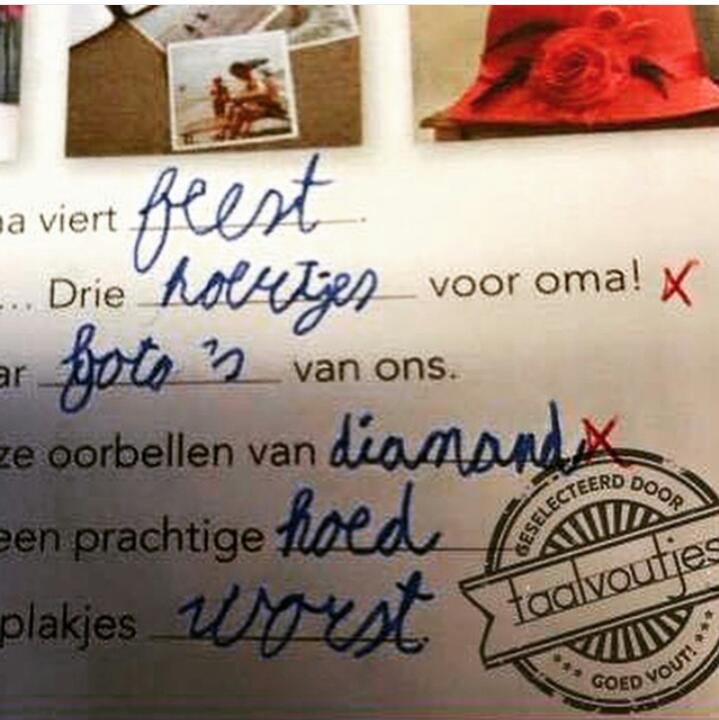 a viert feest.
... Drie hoertjes voor oma!
ar foto's van ons.
ze oorbellen van diamand
een prachtige hoed
plakjes worst.
GESELECTEERD DOOR
taalvoutjes
GOED VOUT!